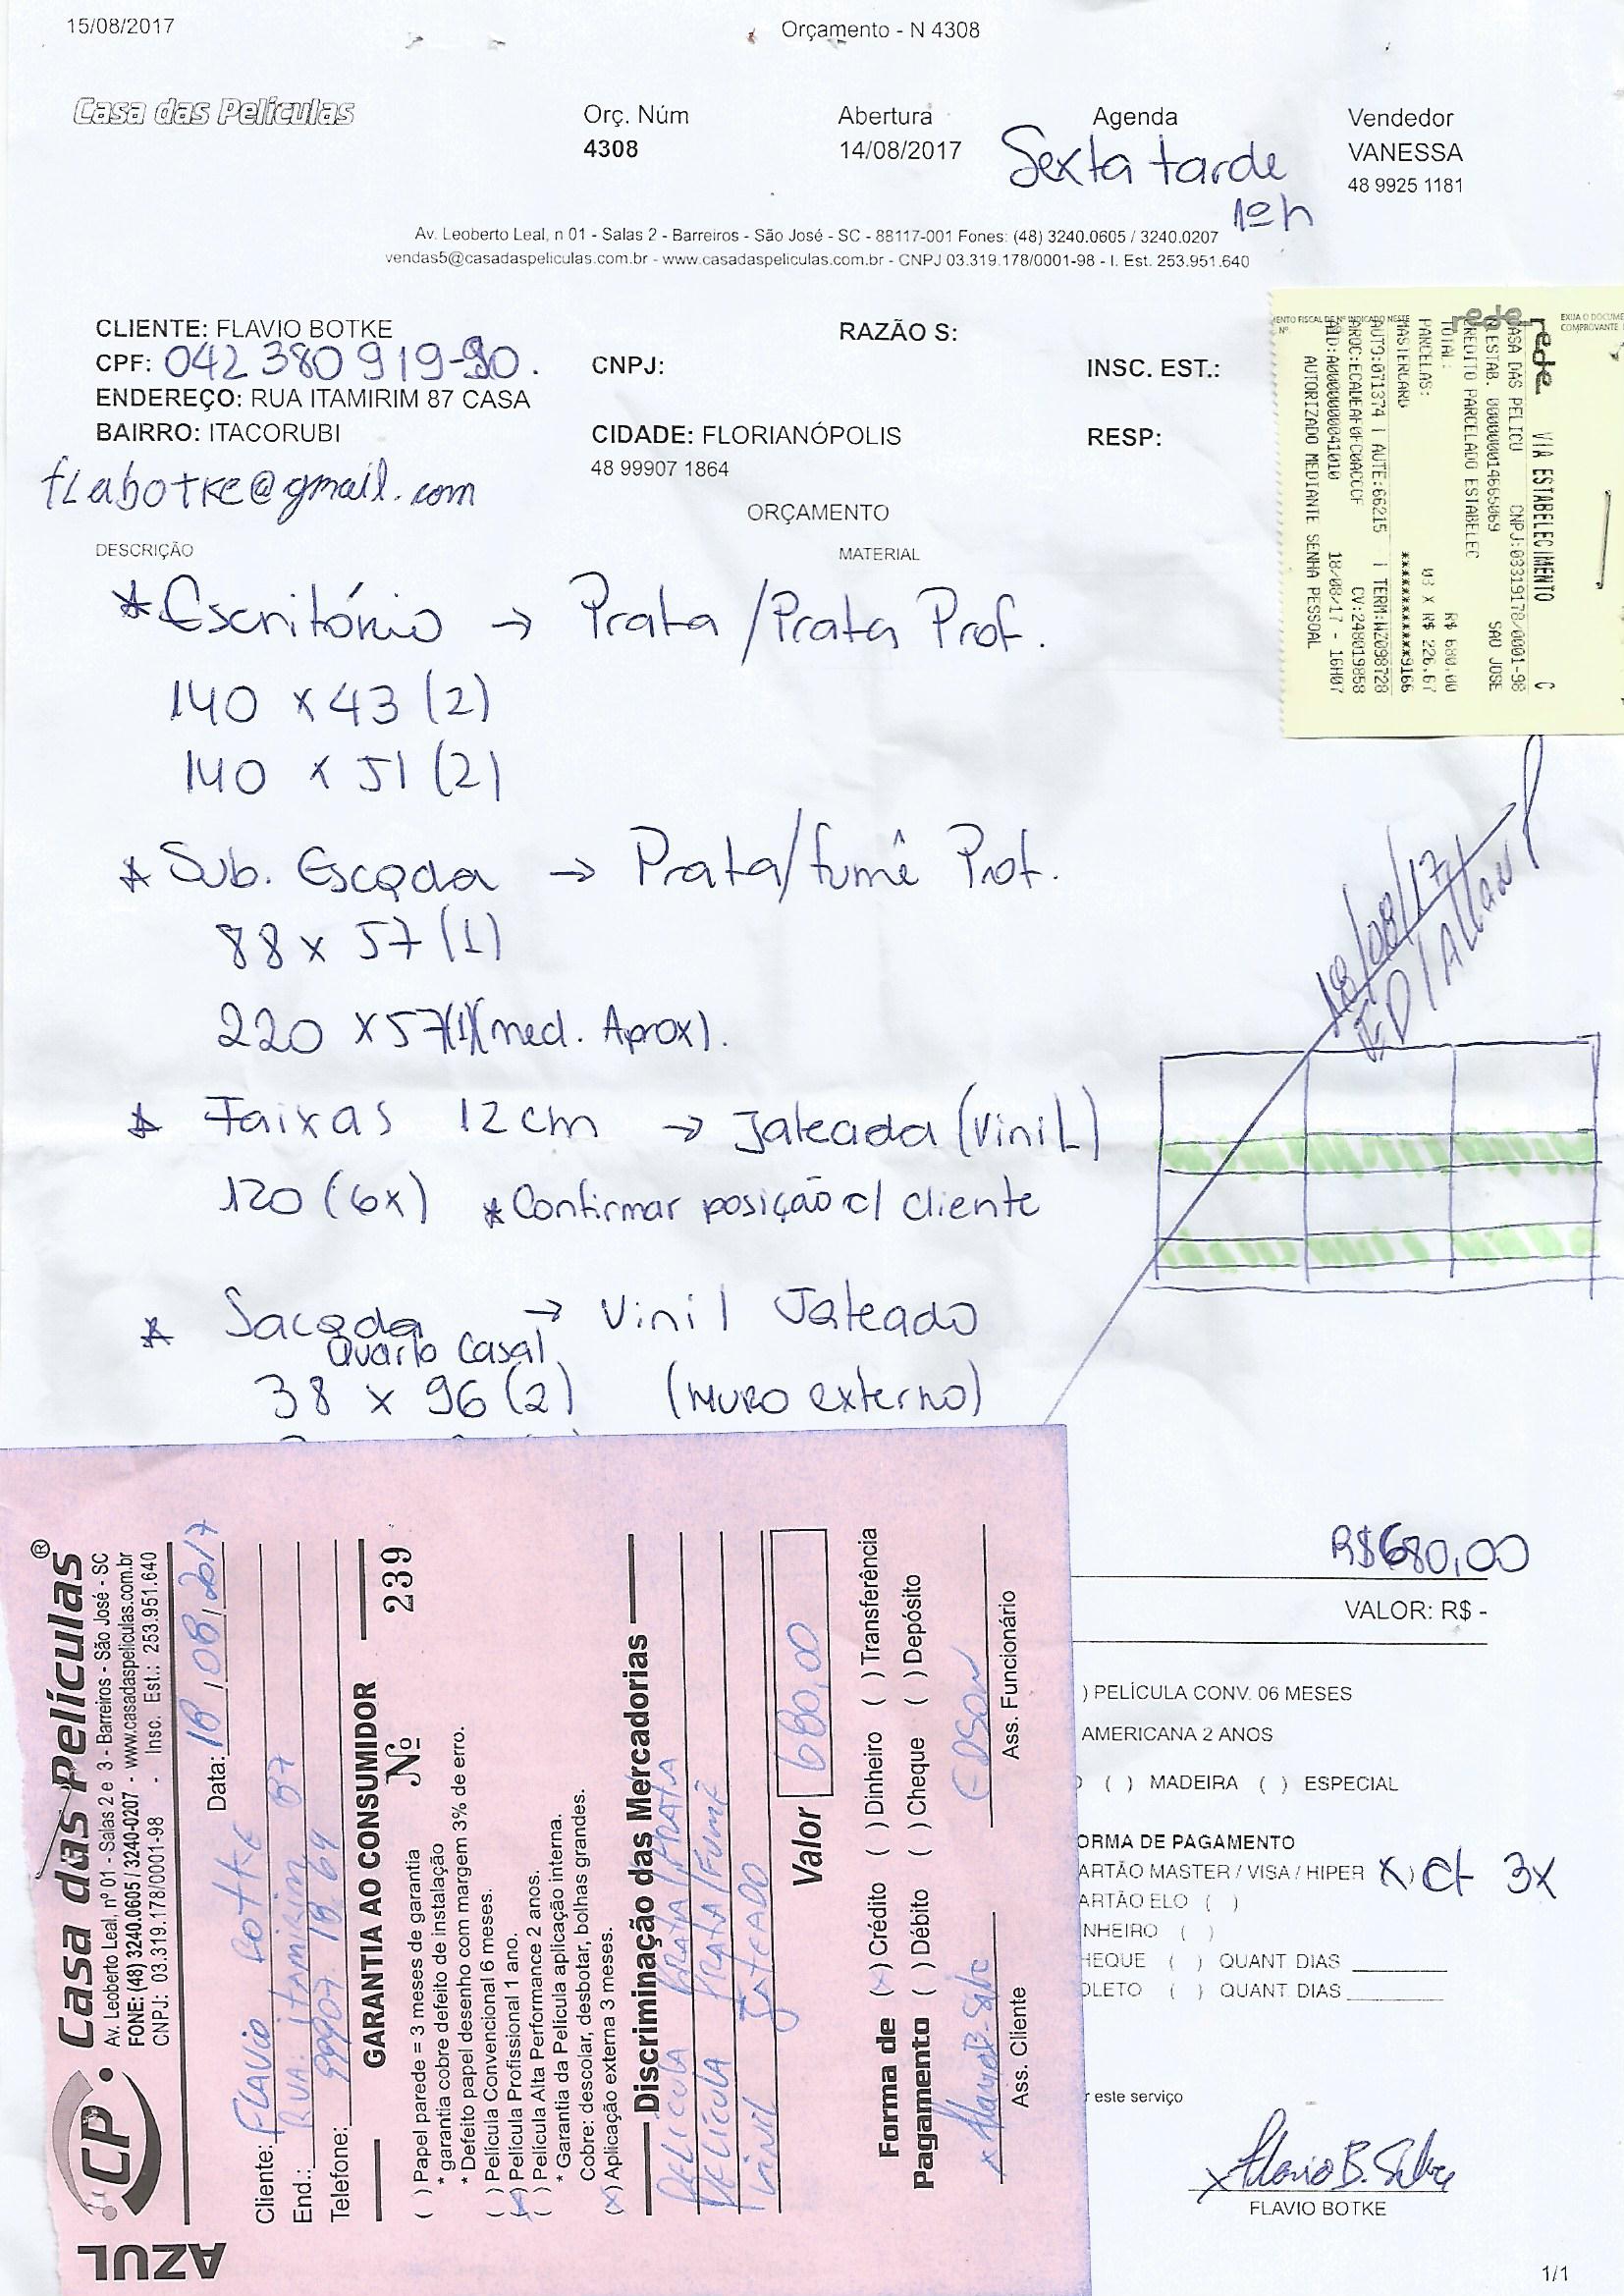 15/08/2017
Orçamento - N 4308
Casa das Películas
Orç. Núm
4308
Abertura
14/08/2017
Agenda
Sexta tarde
Vendedor
VANESSA
48 9925 1181
Av. Leoberto Leal, n 01 - Salas 2 - Barreiros - São José - SC - 88117-001 Fones: (48) 3240.0605 / 3240.0207
vendas5@casadaspeliculas.com.br - www.casadaspeliculas.com.br - CNPJ 03.319.178/0001-98 - I. Est. 253.951.640
CLIENTE: FLAVIO BOTKE
RAZÃO S:
CPF: 042 380 919-90.
CNPJ:
INSC. EST.:
ENDEREÇO: RUA ITAMIRIM 87 CASA
BAIRRO: ITACORUBI
CIDADE: FLORIANÓPOLIS
RESP:
48 99907 1864
flabotke@gmail.com
ORÇAMENTO
DESCRIÇÃO
MATERIAL
* Escritório → Prata/Prata Prof.
140 x 43 (2)
140 x 51 (2)
* Sub. Escada → Prata/fumê Prof.
88 x 57 (1)
220 x 57 (1) (med. Aprox).
* Faixas 12cm → Jateada (Vinil)
120 (6x) * Confirmar posição c/ cliente
* Sacada → Vinil Jateado
Quarto Casal
38 x 96 (2) (muro externo)
18/08/17
ED/Allan
rede
VIA ESTABELECIMENTO C
CASA DAS PELICU CNPJ:03319178/0001-98
ESTAB. 000000014665069 SAO JOSE
CREDITO PARCELADO ESTABELEC
TOTAL: R$ 680,00
PARCELAS: 03 X R$ 226,67
MASTERCARD ************9166
AUTO:071374 | AUTE:66215 | TERM:WZ098728
CV:248019858
AID:A0000000041010 18/08/17 - 16H07
AUTORIZADO MEDIANTE SENHA PESSOAL
R$680,00
VALOR: R$ -
) PELÍCULA CONV. 06 MESES
AMERICANA 2 ANOS
( ) MADEIRA ( ) ESPECIAL
ORMA DE PAGAMENTO
ARTÃO MASTER / VISA / HIPER X) Ct 3x
ARTÃO ELO ( )
NHEIRO ( )
HEQUE ( ) QUANT DIAS
OLETO ( ) QUANT. DIAS
este serviço
FLAVIO BOTKE
1/1
AZUL
CP. Casa das Películas®
Av. Leoberto Leal, nº 01 - Salas 2 e 3 - Barreiros - São José - SC
FONE: (48) 3240.0605 / 3240-0207 - www.casadaspeliculas.com.br
CNPJ: 03.319.178/0001-98 - Insc. Est.: 253.951.640
Data: 18/08/2017
Cliente: Flavio Botke
End.: RUA: Itamirim 87
Telefone: 99907.1864
GARANTIA AO CONSUMIDOR
Nº 239
( ) Papel parede = 3 meses de garantia
* garantia cobre defeito de instalação
* Defeito papel desenho com margem 3% de erro.
( ) Película Convencional 6 meses.
(x) Película Profissional 1 ano.
( ) Película Alta Performance 2 anos.
* Garantia da Película aplicação interna.
Cobre: descolar, desbotar, bolhas grandes.
(x) Aplicação externa 3 meses.
Discriminação das Mercadorias
PELICULA PRATA/PRATA
PELÍCULA PRATA/FUMÊ
VINIL JATEADO
Valor 680,00
Forma de Pagamento
(x) Crédito ( ) Dinheiro ( ) Transferência
( ) Débito ( ) Cheque ( ) Depósito
EDSON
Ass. Cliente
Ass. Funcionário